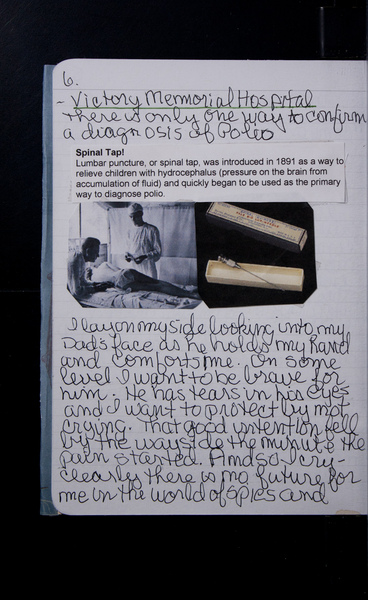 6.
- Victory Memorial Hospital
There is only one way to confirm
a diagnosis of Polio
Spinal Tap!
Lumbar puncture, or spinal tap, was introduced in 1891 as a way to
relieve children with hydrocephalus (pressure on the brain from
accumulation of fluid) and quickly began to be used as the primary
way to diagnose polio.
I lay on my side looking into my
Dad's face as he holds my hand
and comforts me. On some
level I want to be brave for
him. He has tears in his eyes
and I want to protect by not
crying. That good intention fell
by the wayside the minute the
pain started. And so I cry-
clearly there is no future for
me in the world of spies and